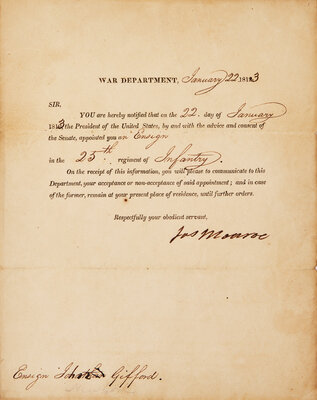 WAR DEPARTMENT, January 22 1813
SIR,
YOU are hereby notified that on the 22 day of January
1813 the President of the United States, by and with the advice and consent of
the Senate, appointed you an Ensign
in the 25th regiment of Infantry;
On the receipt of this information, you will please to communicate to this
Department, your acceptance or non-acceptance of said appointment; and in case
of the former, remain at your present place of residence, until further orders.
Respectfully your obedient servant,
Jas Monroe
Ensign Gifford.